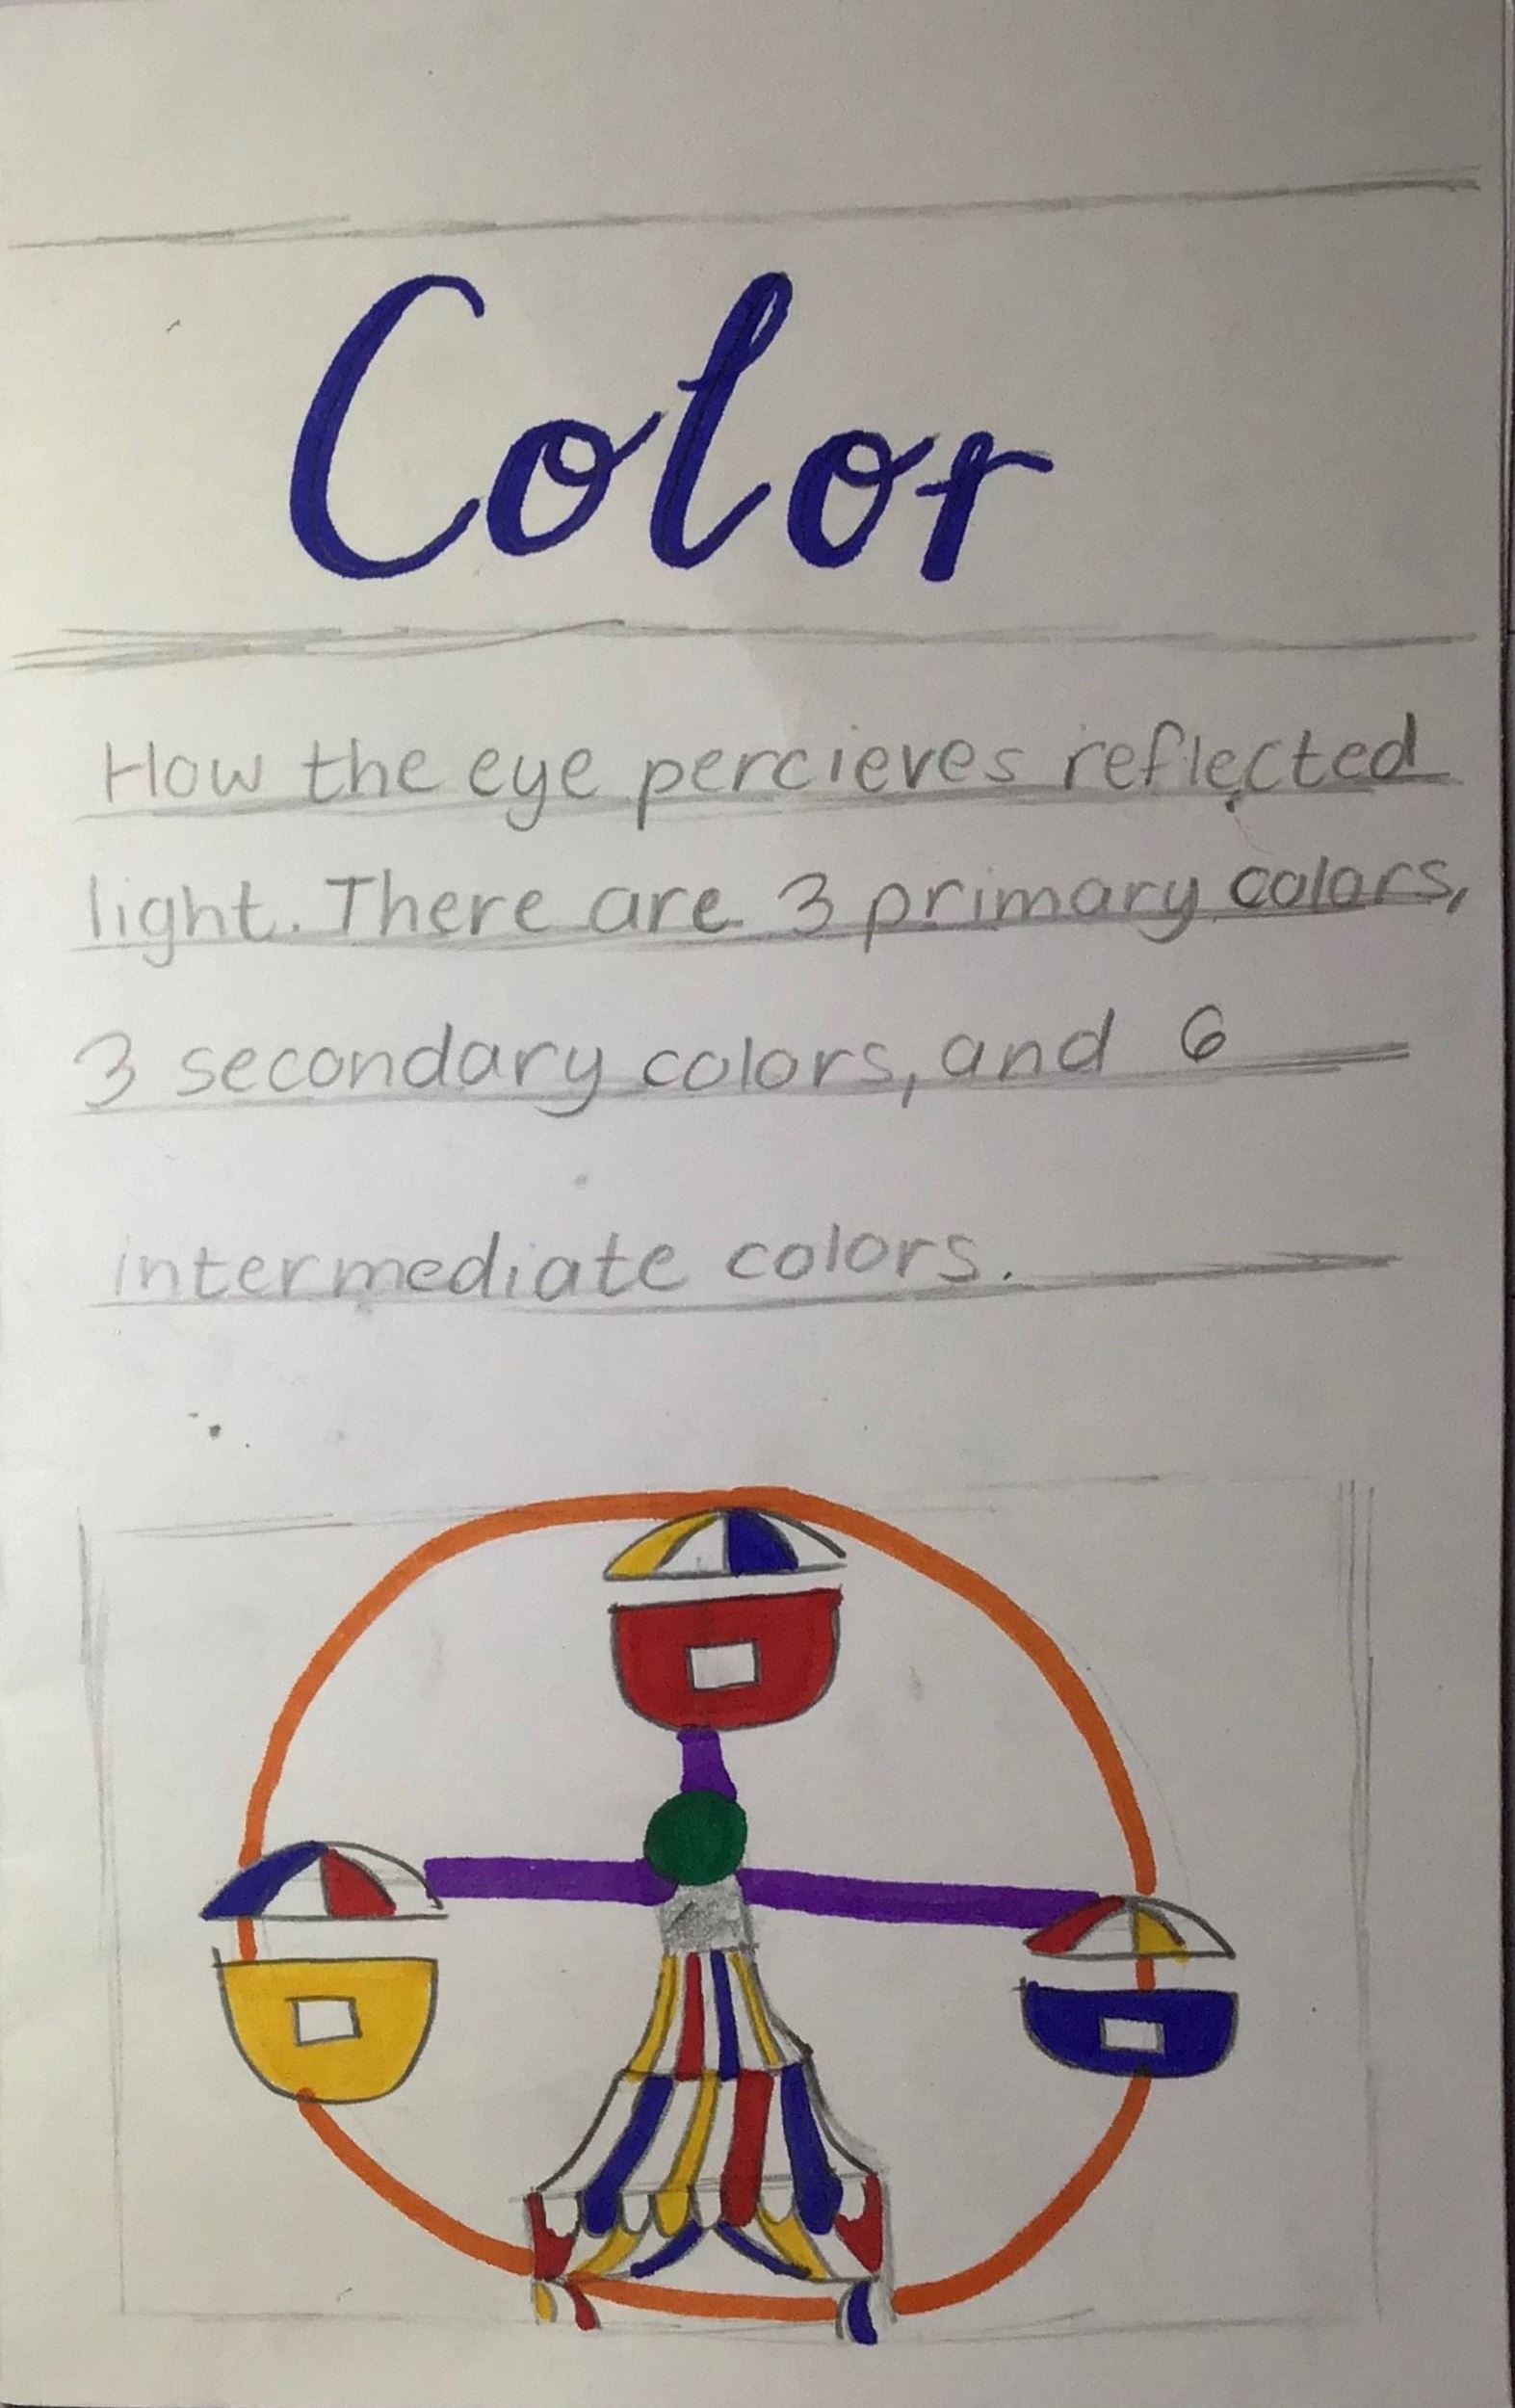 Color
How the eye percieves reflected
light. There are 3 primary colors,
3 secondary colors, and 6
intermediate colors.